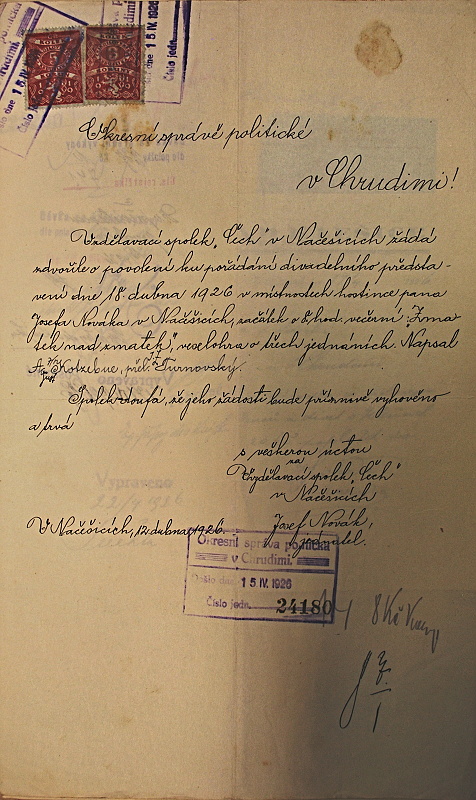 Okresní správě politické
v Chrudimi!
Vzdělavací spolek „Čech" v Načešicích žádá
zdvořile o povolení ku pořádání divadelního představ-
vení dne 18. dubna 1926 v místnostech hostince pana
Josefa Nováka v Načešicích, začátek o 8 hod. večerní „Zma
tek nad zmatek", veselohra o třech jednáních. Napsal
A. Kotzebue, přel. J. L. Turnovský.
Spolek doufá, že jeho žádosti bude příznivě vyhověno
a trvá
s veškerou úctou
za
Vzdělavací spolek „Čech"
v Načešicích
V Načešicích, 12. dubna 1926.
Josef Novák,
jednatel.
Okresní správa politická
v Chrudimi.
Došlo dne 15 IV. 1926
Číslo jedn. 24180
8 Kč